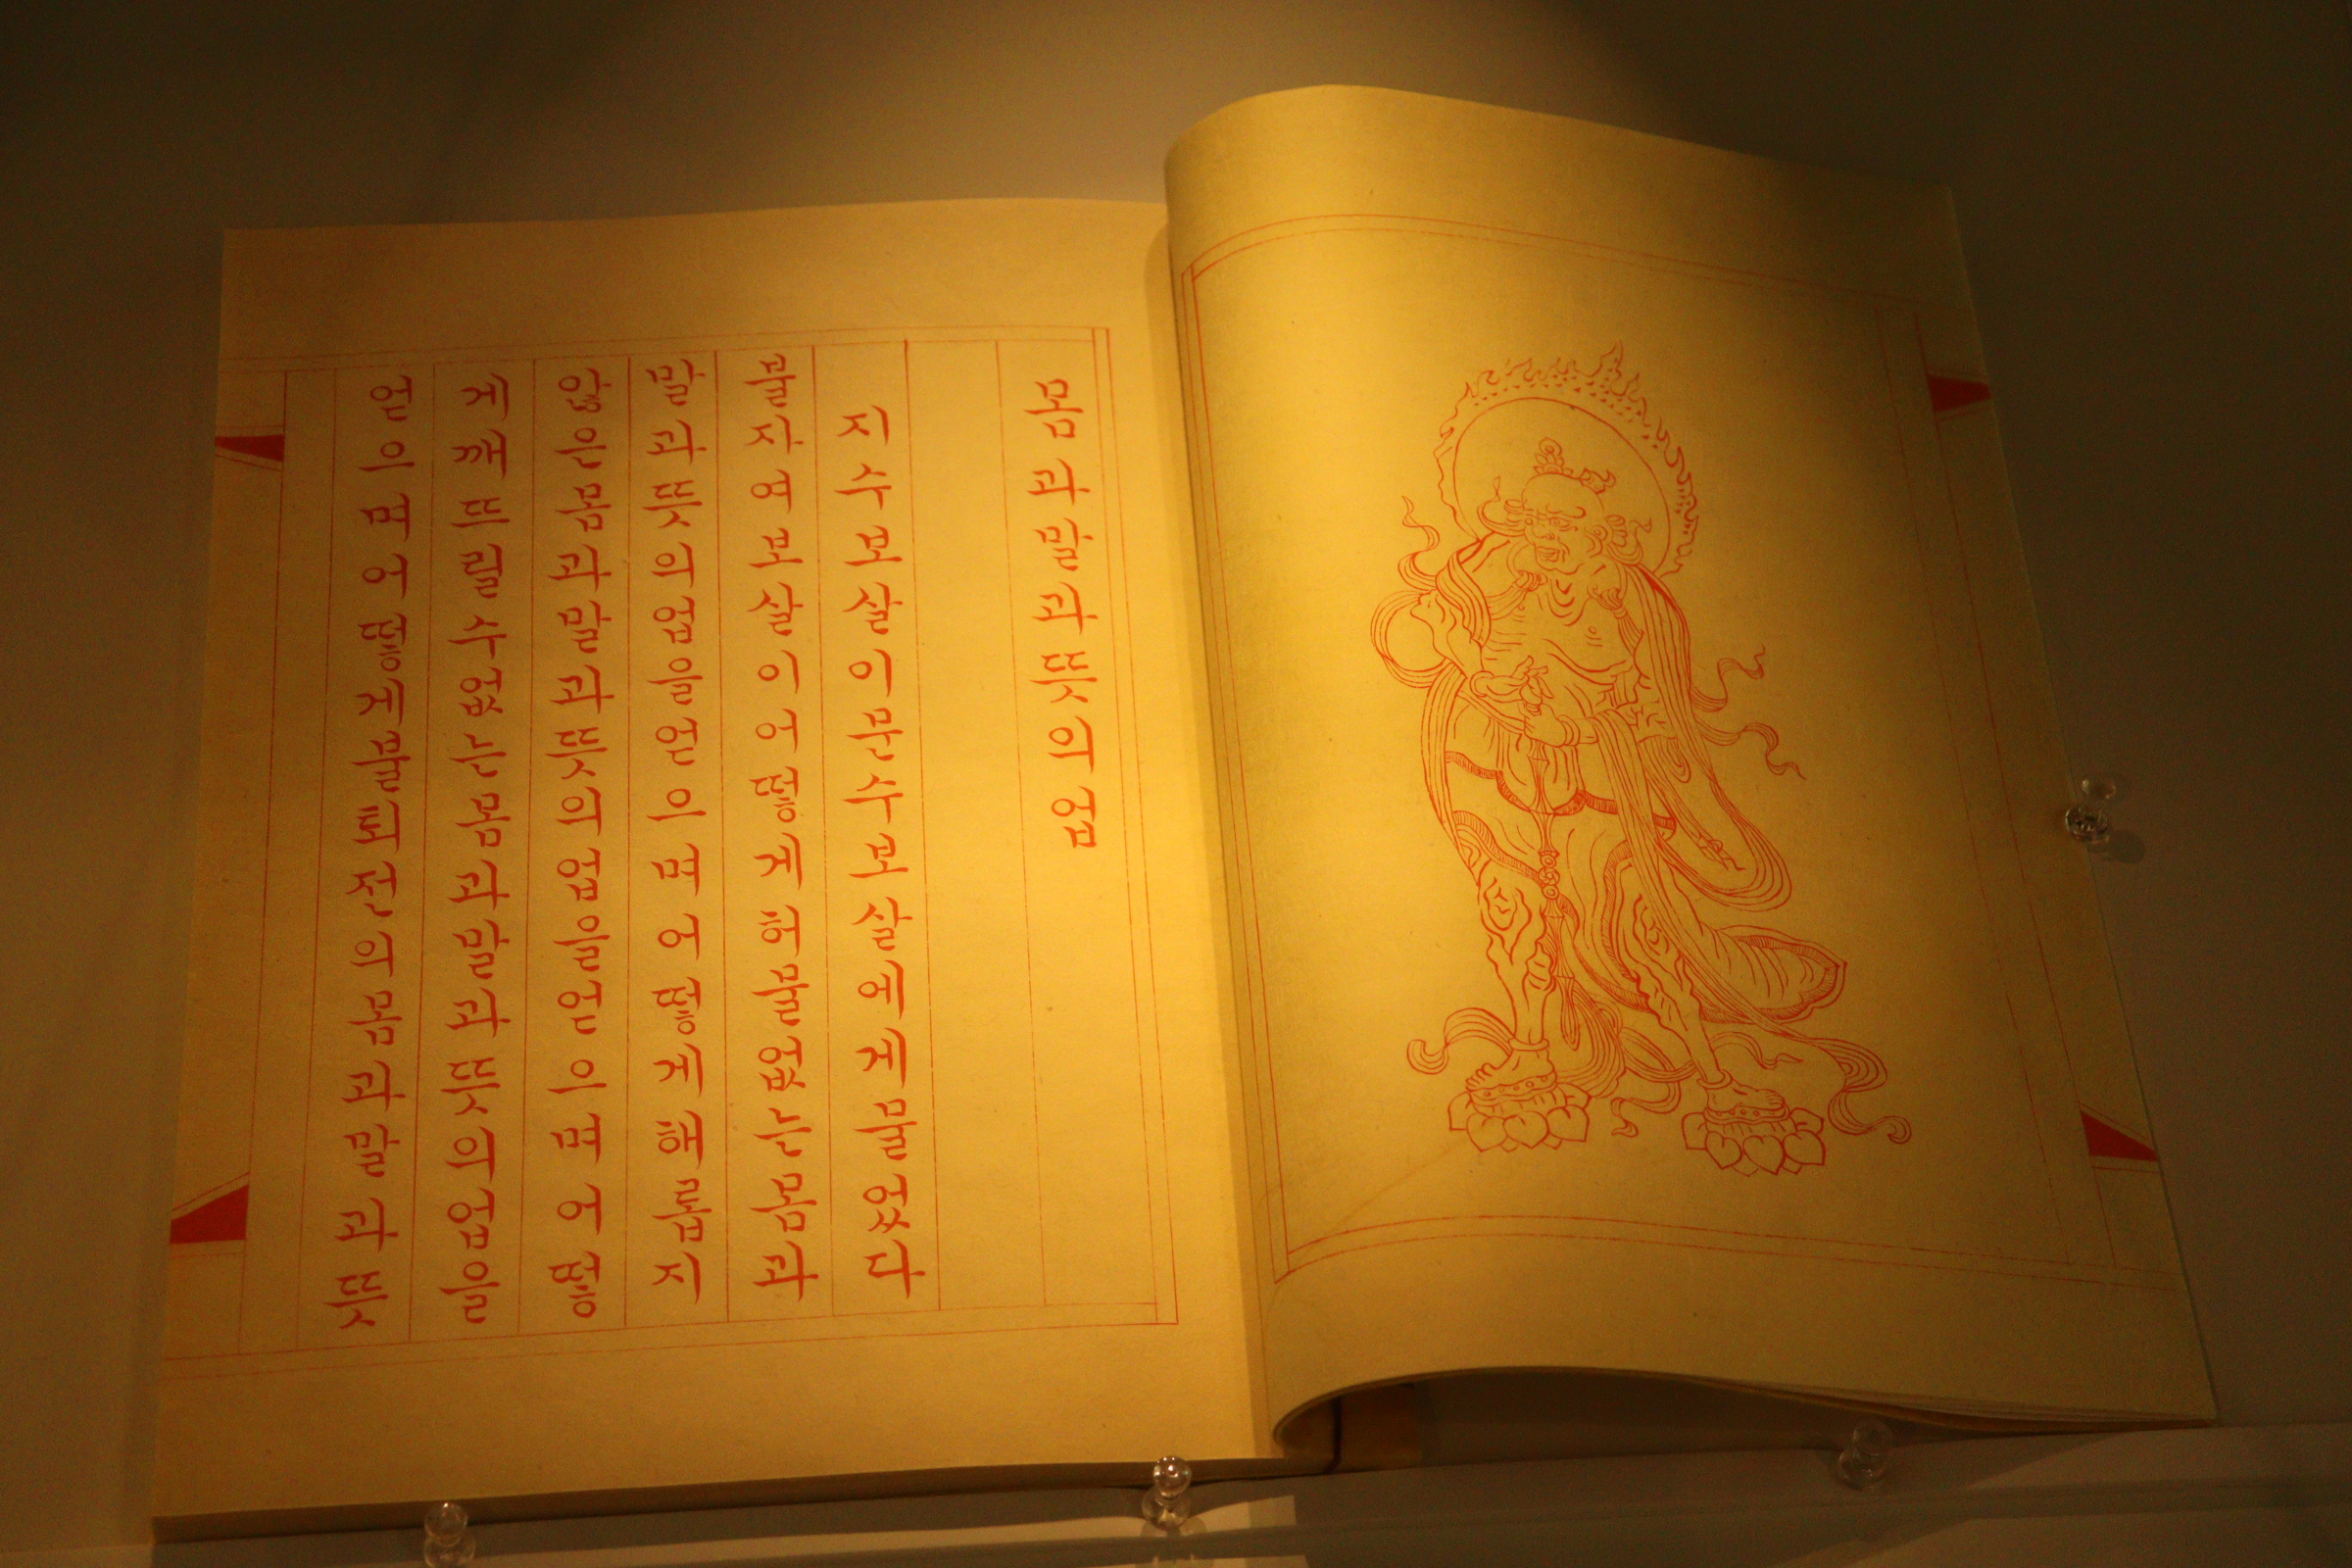 몸과말과뜻의업
지수보살이문수보살에게물었다
불자여보살이어떻게허물없는몸과
말과뜻의업을얻으며어떻게해롭지
않은몸과말과뜻의업을얻으며어떻
게깨뜨릴수없는몸과말과뜻의업을
얻으며어떻게불퇴전의몸과말과뜻